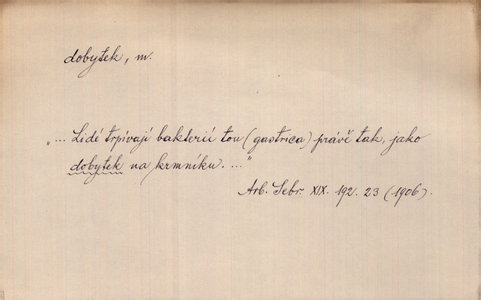 dobytek, m.
„... Lidé trpívají bakterií tou (gastrica) právě tak, jako
dobytek na krmníku. ..."
Arb. Sebr. XIX. 192. 23 (1906).